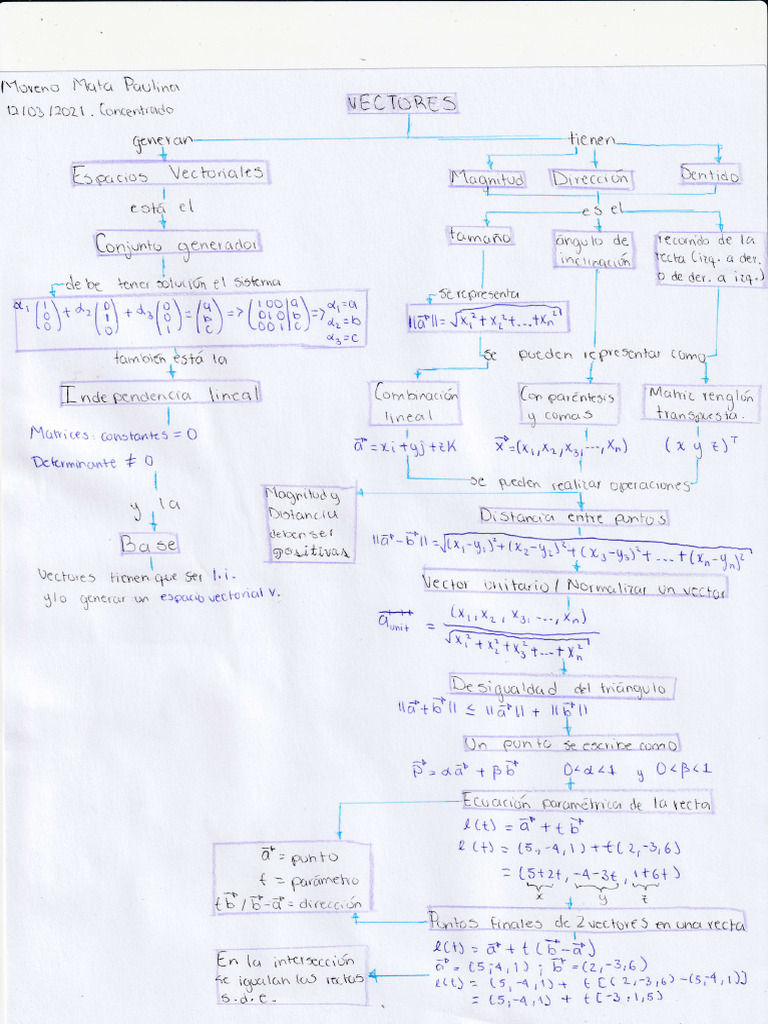 Moreno Mata Paulina
12/03/2021. Concentrado
VECTORES
generan
tienen
Espacios Vectoriales
Magnitud
Dirección
Sentido
está el
es el
Conjunto generador
tamaño
ángulo de
inclinación
recorrido de la
recta (izq. a der.
o de der. a izq.)
debe tener solución el sistema
α₁(1 0 0) + α₂(0 1 0) + α₃(0 0 1) = (a b c) => (1 0 0 | a
0 1 0 | b
0 0 1 | c) => α₁=a
α₂=b
α₃=c
se representa
||a⃗|| = √x₁²+x₂²+...+xn²
también está la
se pueden representar como
Independencia lineal
Combinación
lineal
Con paréntesis
y comas
Matriz renglón
transpuesta.
Matrices: constantes = 0
Determinante ≠ 0
a⃗=xi+yj+zk
x⃗=(x₁,x₂,x₃,...,xn)
(x y z)ᵀ
se pueden realizar operaciones
y la
Base
Vectores tienen que ser l.i.
y/o generar un espacio vectorial v.
Magnitud y
Distancia
deben ser
positivas
Distancia entre puntos
||a⃗-b⃗|| = √(x₁-y₁)²+(x₂-y₂)²+(x₃-y₃)²+...+(xn-yn)²
Vector unitario / Normalizar un vector
a⃗unit = (x₁,x₂,x₃,...,xn)
√x₁²+x₂²+x₃²+...+xn²
Desigualdad del triángulo
||a⃗+b⃗|| ≤ ||a⃗|| + ||b⃗||
Un punto se escribe como
p⃗=αa⃗+βb⃗ 0<α<1 y 0<β<1
Ecuación paramétrica de la recta
l(t) = a⃗+tb⃗
l(t) = (5,-4,1)+t(2,-3,6)
= (5+2t, -4-3t, 1+6t)
x y z
a⃗ = punto
t = parámetro
tb⃗/b⃗-a⃗ = dirección
Puntos finales de 2 vectores en una recta
l(t) = a⃗+t(b⃗-a⃗)
a⃗=(5,-4,1) ; b⃗=(2,-3,6)
l(t) = (5,-4,1) + t[(2,-3,6)-(5,-4,1)]
= (5,-4,1) + t[-3,1,5)
En la intersección
se igualan las rectas
s.d.e.